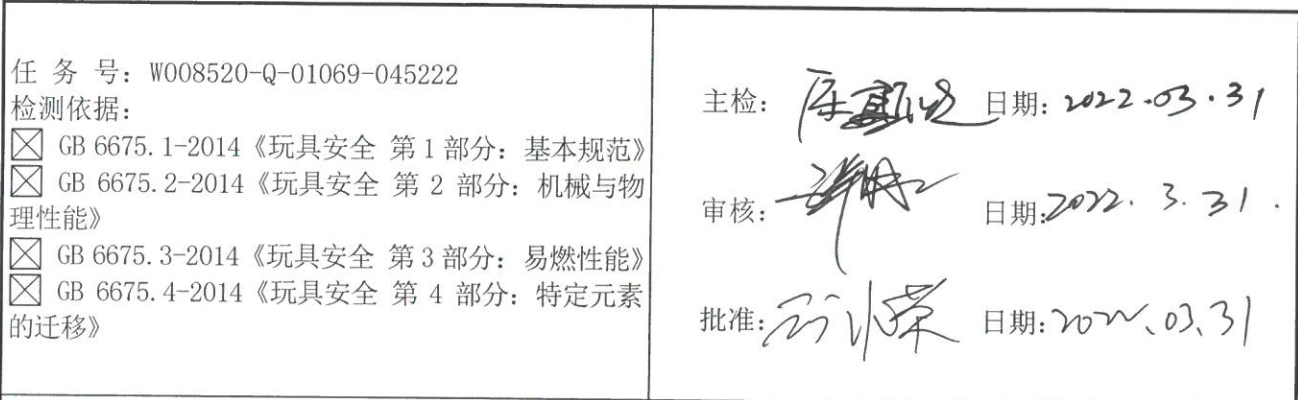 任 务 号：W008520-Q-01069-045222
检测依据：
☒ GB 6675.1-2014《玩具安全 第1部分：基本规范》
☒ GB 6675.2-2014《玩具安全 第 2 部分：机械与物
理性能》
☒ GB 6675.3-2014《玩具安全 第3部分：易燃性能》
☒ GB 6675.4-2014《玩具安全 第 4 部分：特定元素
的迁移》
主检： 日期：2022.03.31
审核： 日期：2022. 3. 31.
批准： 日期：2022、03、31